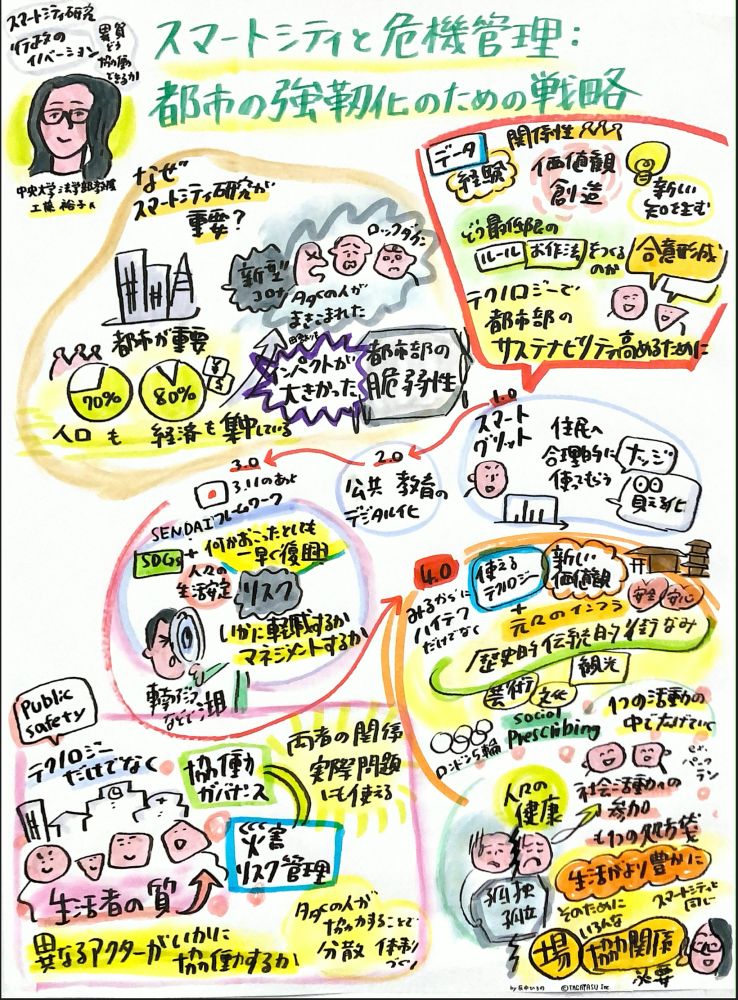 スマートシティ研究
行政の
イノベーション
異質
どう
協働
できるか
スマートシティと危機管理:
都市の強靭化のための戦略
中央大学法学部教授
工藤 裕子さん
なぜ
スマートシティ研究が
重要?
都市が重要
70%
80%
¥
$
人口も 経済も集中している
新型
コロナ
ロックダウン
タタくの人が
まきこまれた
インパクトが
大きかった
都市部の
脆弱性
データ
経験
関係性
価値観
創造
新しい
知を生む
どう最低限の
ルール
お作法
をつくる
のか
合意形成
テクノロジーで
都市部の
サステナビリティ高めるために
1.0
スマート
グリット
住民へ
合理的に
使ってもらう
ナッジ
見える化
2.0
公共 教育の
デジタル化
3.0
3.11のあと
SENDAIフレームワーク
SDGs
+
何かおこったとしても
一早く復興
人々の
生活安定
リスク
いかに軽減するか
マネジメントするか
4.0
みるからに
ハイテク
だけでなく
使える
テクノロジー
新しい
価値観
+
元々のインフラ
安全
安心
歴史的伝統的街なみ
観光
芸術
文化
Social
Prescribing
ロンドン五輪
1つの活動の
中でたげていく
ex.
パーク
ラン
人々の
健康
社会活動への
参加
もう1つの処方箋
孤独
孤立
生活がより豊かに
そのために
いろんな
スマートシティと
同じ
場
協力関係
必要
Public
Safety
テクノロジー
だけでなく
協働
ガバナンス
両者の関係
実際問題
にも使える
災害
リスク管理
生活者の質
異なるアクターがいかに
協働するか
タタくの人が
協力することで
分散 体制
づくり
©TAGAYASU Inc